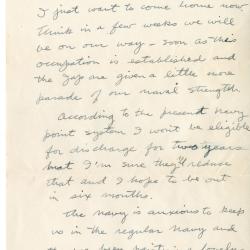 I just want to come home now.
think in a few weeks we will
be on our way - soon as this
occupation is established and
the Japs are given a little more
parade of our naval strength.
According to the present Navy
point system I won't be eligible
for discharge for two years
but I'm sure they'll
that and I hope to be out
in six months.
The Navy is anxious to keep
us in the regular Navy and